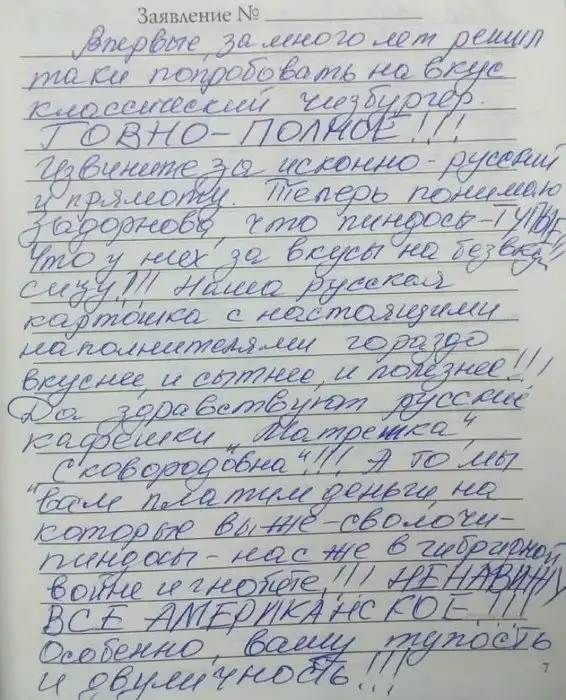 Заявление №
Впервые, за много лет решил
таки попробовать на вкус
классический чизбургер.
ГОВНО-ПОЛНОЕ!!!
Извините за исконно-русский
и прямоту. Теперь понимаю
Задорнова, что пиндосы-ТУПЫЕ,
Что у них за вкусы на безвку-
сицу?!!! Наша русская
картошка с настоящими
наполнителями гораздо
вкуснее, и сытнее, и полезнее!!!
Да здравствуют русские
кафешки „Матрешка",
„Сковородовна"!!! А то мы
вам платим деньги, на
которые вы же-сволочи-
пиндосы-нас же в гибридной
войне и гнобите!!! НЕНАВИЖУ
ВСЕ АМЕРИКАНСКОЕ!!!
Особенно, вашу тупость
и двуличность!!!
7